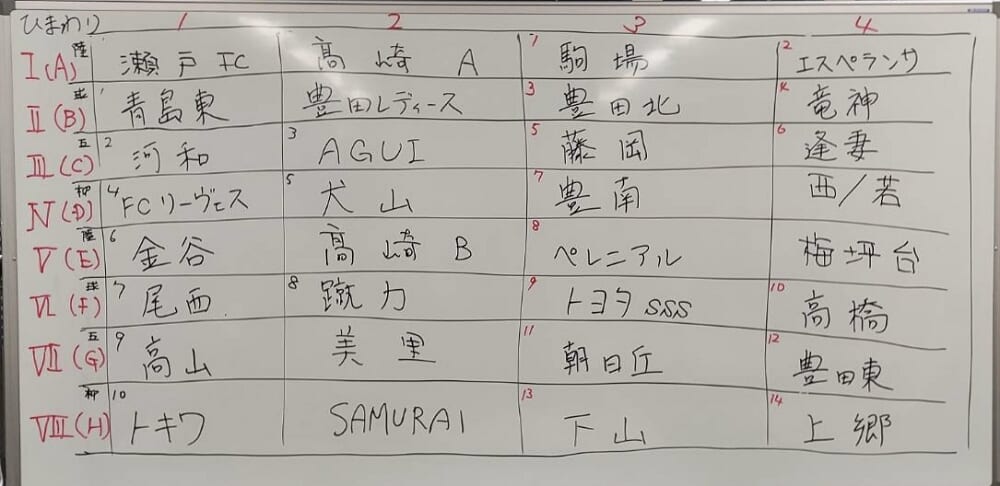 ひまわり 1 2 3 4
I(A) 陸 瀬戸FC 高崎A 1 駒場 2 エスペランサ
II(B) 球 1 青島東 豊田レディース 3 豊田北 4 竜神
III(C) 互 2 河和 3 AGUI 5 藤岡 6 逢妻
IV(D) 柳 4 FCリーヴェス 5 犬山 7 豊南 西/若
V(E) 陸 6 金谷 高崎B 8 ペレニアル 梅坪台
VI(F) 球 7 尾西 8 蹴力 9 トヨタSSS 10 高橋
VII(G) 互 9 高山 美里 11 朝日丘 12 豊田東
VIII(H) 柳 10 トキワ SAMURAI 13 下山 14 上郷